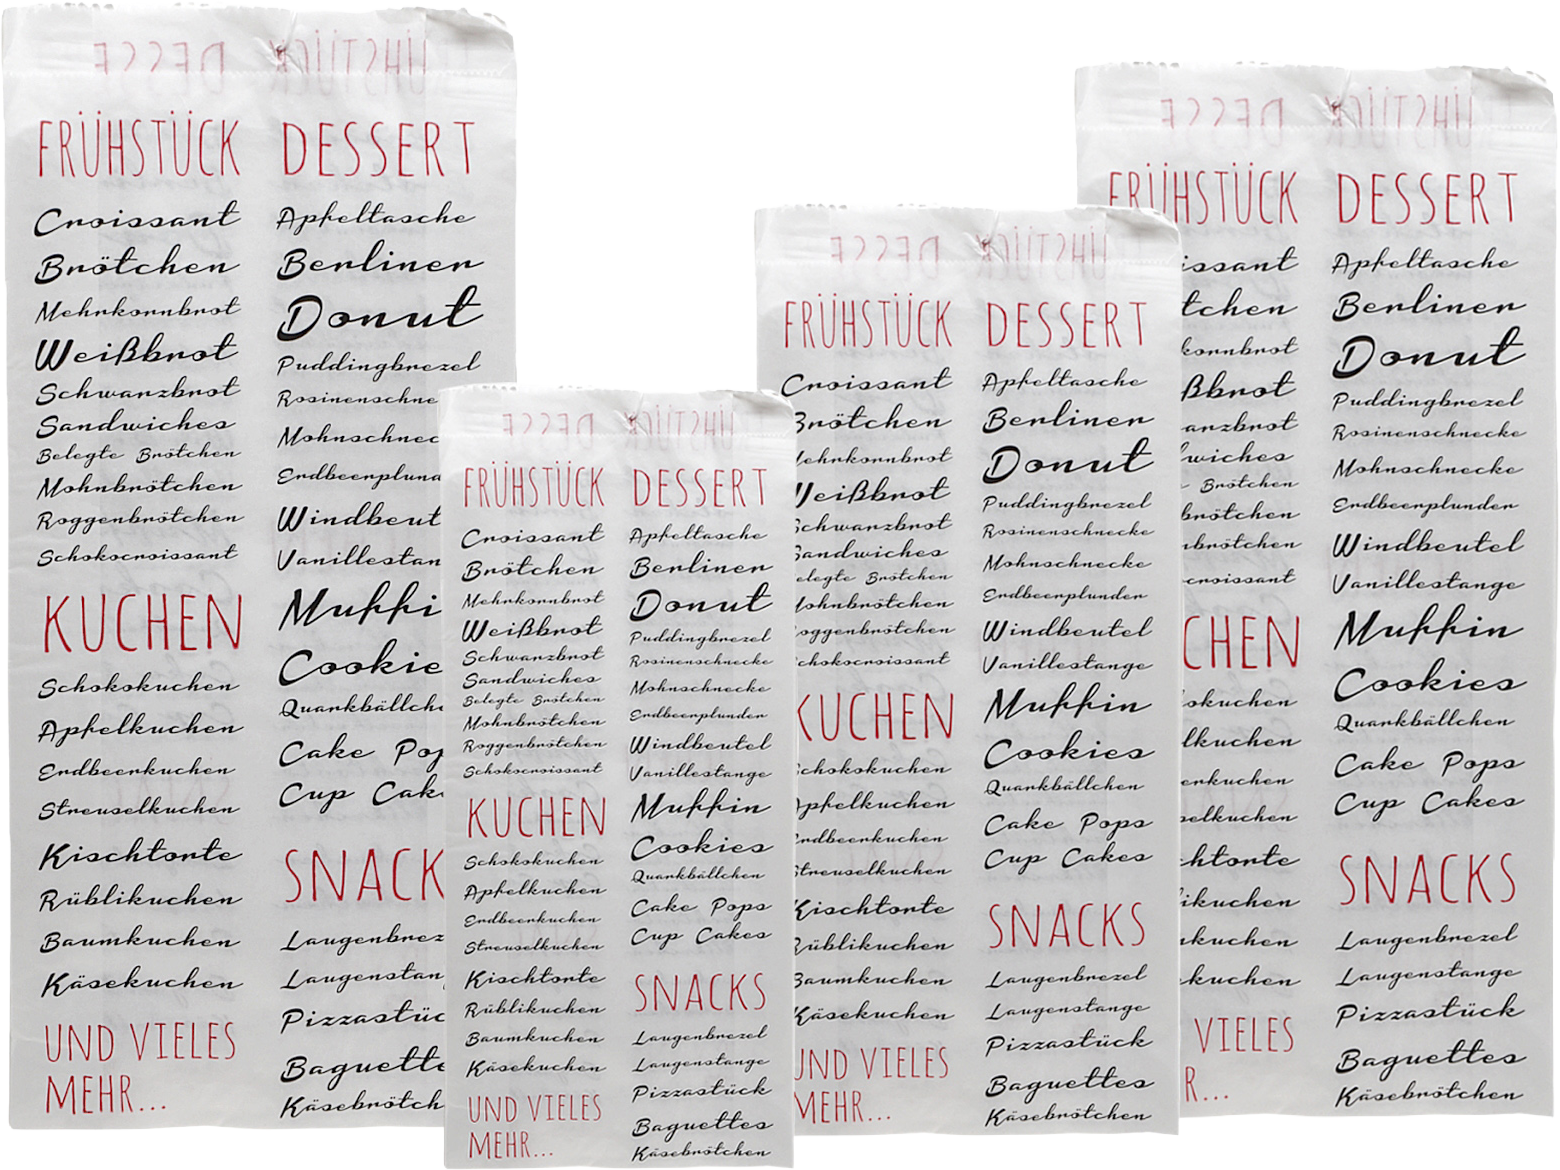 FRÜHSTÜCK
Croissant
Brötchen
Mehrkornbrot
Weißbrot
Schwarzbrot
Sandwiches
Belegte Brötchen
Mohnbrötchen
Roggenbrötchen
Schokocroissant
KUCHEN
Schokokuchen
Apfelkuchen
Erdbeerkuchen
Streuselkuchen
Kischtorte
Rüblikuchen
Baumkuchen
Käsekuchen
UND VIELES
MEHR...
DESSERT
Apfeltasche
Berliner
Donut
Puddingbrezel
Rosinenschne
Mohnschnec
Erdbeerplund
Windbeut
Vanillestan
Muffi
Cookie
Quarkbällch
Cake Pop
Cup Cak
SNACK
Laugenbrez
Laugenstan
Pizzastüc
Baguette
Käsebrötch
FRÜHSTÜCK
Croissant
Brötchen
Mehrkornbrot
Weißbrot
Schwarzbrot
Sandwiches
Belegte Brötchen
Mohnbrötchen
Roggenbrötchen
Schokocroissant
KUCHEN
Schokokuchen
Apfelkuchen
Erdbeerkuchen
Streuselkuchen
Kischtorte
Rüblikuchen
Baumkuchen
Käsekuchen
UND VIELES
MEHR...
DESSERT
Apfeltasche
Berliner
Donut
Puddingbrezel
Rosinenschnecke
Mohnschnecke
Erdbeerplunder
Windbeutel
Vanillestange
Muffin
Cookies
Quarkbällchen
Cake Pops
Cup Cakes
SNACKS
Laugenbrezel
Laugenstange
Pizzastück
Baguettes
Käsebrötchen
FRÜHSTÜCK
Croissant
Brötchen
ehrkornbrot
Weißbrot
chwarzbrot
andwiches
elegte Brötchen
ohnbrötchen
oggenbrötchen
chokocroissant
KUCHEN
chokokuchen
pfelkuchen
rdbeerkuchen
treuselkuchen
Kischtorte
üblikuchen
Baumkuchen
Käsekuchen
UND VIELES
MEHR...
DESSERT
Apfeltasche
Berliner
Donut
Puddingbrezel
Rosinenschnecke
Mohnschnecke
Erdbeerplunder
Windbeutel
Vanillestange
Muffin
Cookies
Quarkbällchen
Cake Pops
Cup Cakes
SNACKS
Laugenbrezel
Laugenstange
Pizzastück
Baguettes
Käsebrötchen
FRÜHSTÜCK
issant
tchen
kornbrot
ßbrot
arzbrot
wiches
Brötchen
brötchen
nbrötchen
croissant
CHEN
okuchen
lkuchen
erkuchen
selkuchen
chtorte
ikuchen
nkuchen
kuchen
VIELES
R...
DESSERT
Apfeltasche
Berliner
Donut
Puddingbrezel
Rosinenschnecke
Mohnschnecke
Erdbeerplunder
Windbeutel
Vanillestange
Muffin
Cookies
Quarkbällchen
Cake Pops
Cup Cakes
SNACKS
Laugenbrezel
Laugenstange
Pizzastück
Baguettes
Käsebrötchen